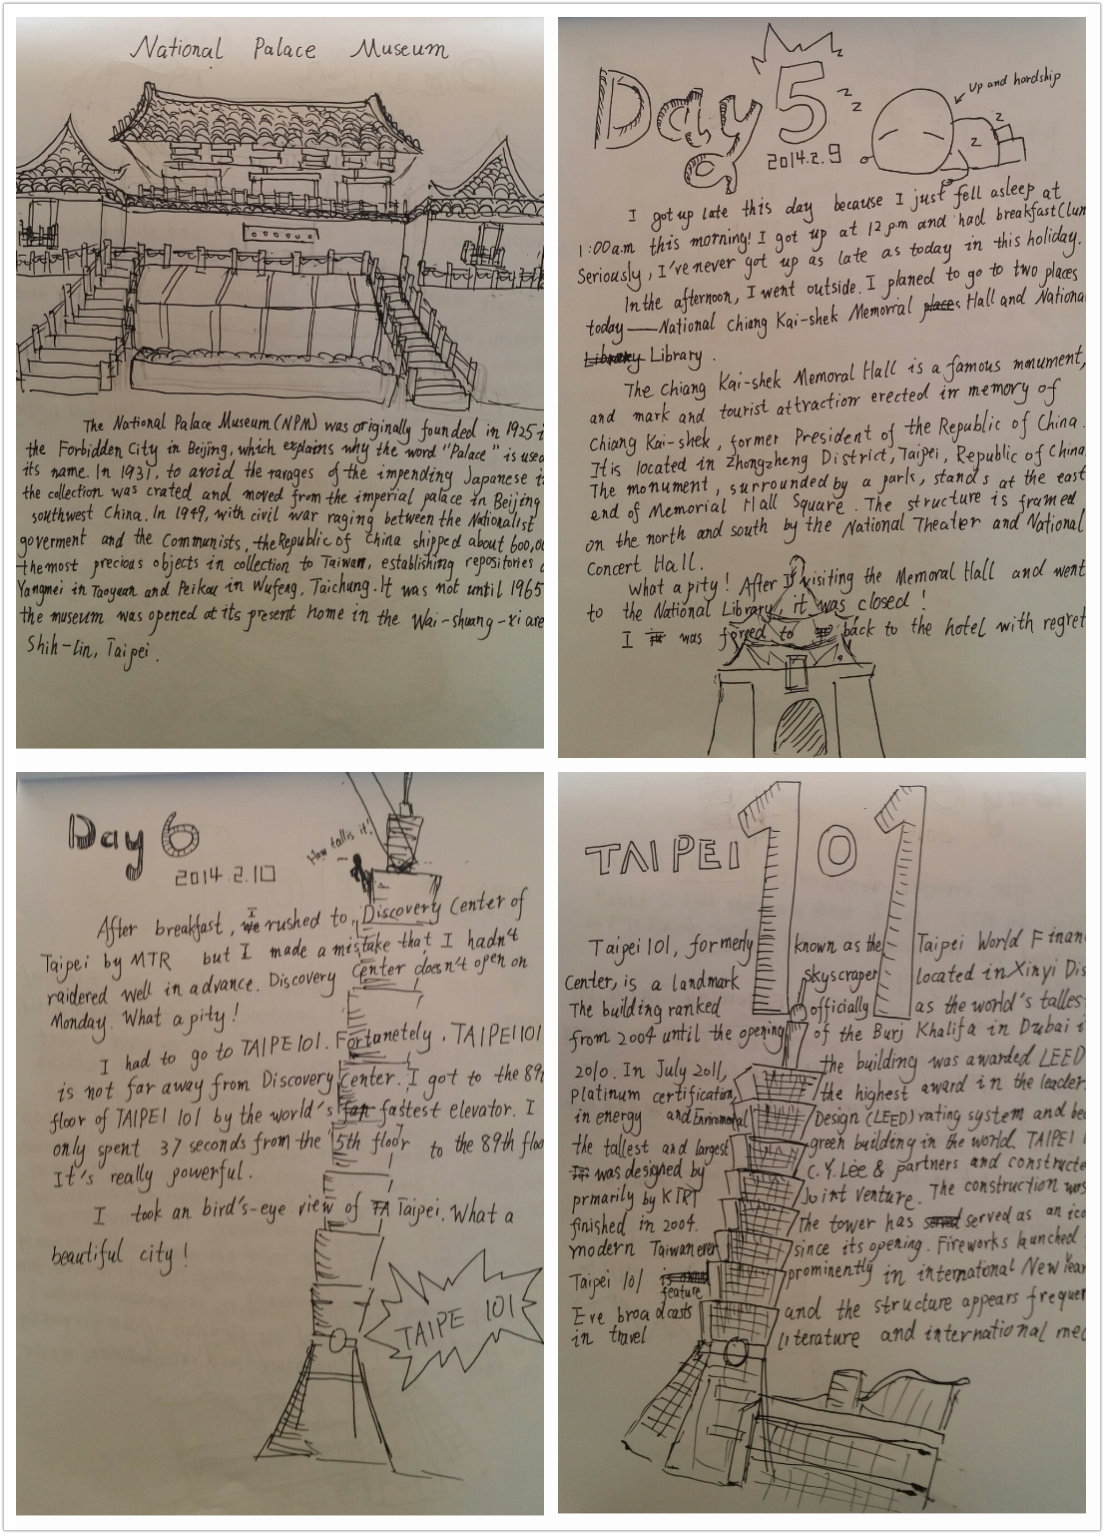 National Palace Museum
The National Palace Museum (NPM) was originally founded in 1925 i
the Forbidden City in Beijing, which explains why the word "Palace" is used
its name. In 1931, to avoid the ravages of the impending Japanese i
the collection was crated and moved from the imperial palace in Beijing
southwest China. In 1949, with civil war raging between the Nationalist
goverment and the Communists, the Republic of China shipped about 600,00
the most precious objects in collection to Taiwan, establishing repositories
Yangmei in Taoyuan and Peikou in Wufeng, Taichung. It was not until 1965
the museum was opened at its present home in the Wai-shuang-xi are
Shih-Lin, Taipei.
Day 5
2014.2.9
z z z
z z
up and hardship
I got up late this day because I just fell asleep at
1:00 a.m this morning! I got up at 12 pm and had breakfast (lun
Seriously, I've never got up as late as today in this holiday.
In the afternoon, I went outside. I planed to go to two places
today — National Chiang Kai-shek Memorial places Hall and Nationa
Library Library.
The Chiang Kai-shek Memoral Hall is a famous mnument,
and mark and tourist attraction erected in memory of
Chiang Kai-shek, former President of the Republic of China.
It is located in Zhongzheng District, Taipei, Republic of China
The monument, surrounded by a park, stands at the east
end of Memorial Hall Square. The structure is framed
on the north and south by the National Theater and National
Concert Hall.
What a pity! After I visiting the Memoral Hall and went
to the National Library, it was closed!
I was forced to back to the hotel with regret
Day 6
2014.2.10
How tall is it!
After breakfast, we I rushed to Discovery Center of
Taipei by MTR but I made a mistake that I hadn't
raidered well in advance. Discovery Center doesn't open on
Monday. What a pity!
I had to go to TAIPE 101. Fortanetely. TAIPEI 101
is not far away from Discovery Center. I got to the 89t
floor of TAIPEI 101 by the world's fan fastest elevator. I
only spent 37 seconds from the 5th floor to the 89th floo
It's really powerful.
I took an bird's-eye view of TA Taipei. What a
beautiful city!
TAIPE 101
TAIPEI 101
Taipei 101, formerly known as the Taipei World Finan
Center, is a landmark skyscraper located in Xinyi Dis
The building ranked officially as the world's talles
from 2004 until the opening of the Burj Khalifa in Dubai i
2010. In July 2011, the building was awarded LEED
platinum certification, the highest award in the leader
in energy and Enviromental Design (LEED) rating system and be
the tallest and largest green building in the world. TAIPEI 1
It was designed by C.Y. Lee & partners and constructe
prmarily by KTRT Joint venture. The construction was
finished in 2004. The tower has served served as an ico
modern Taiwan ever since its opening. Fireworks launched
Taipei 101 feature prominently in international New Year
Eve broadcasts and the structure appears frequen
in travel literature and international med